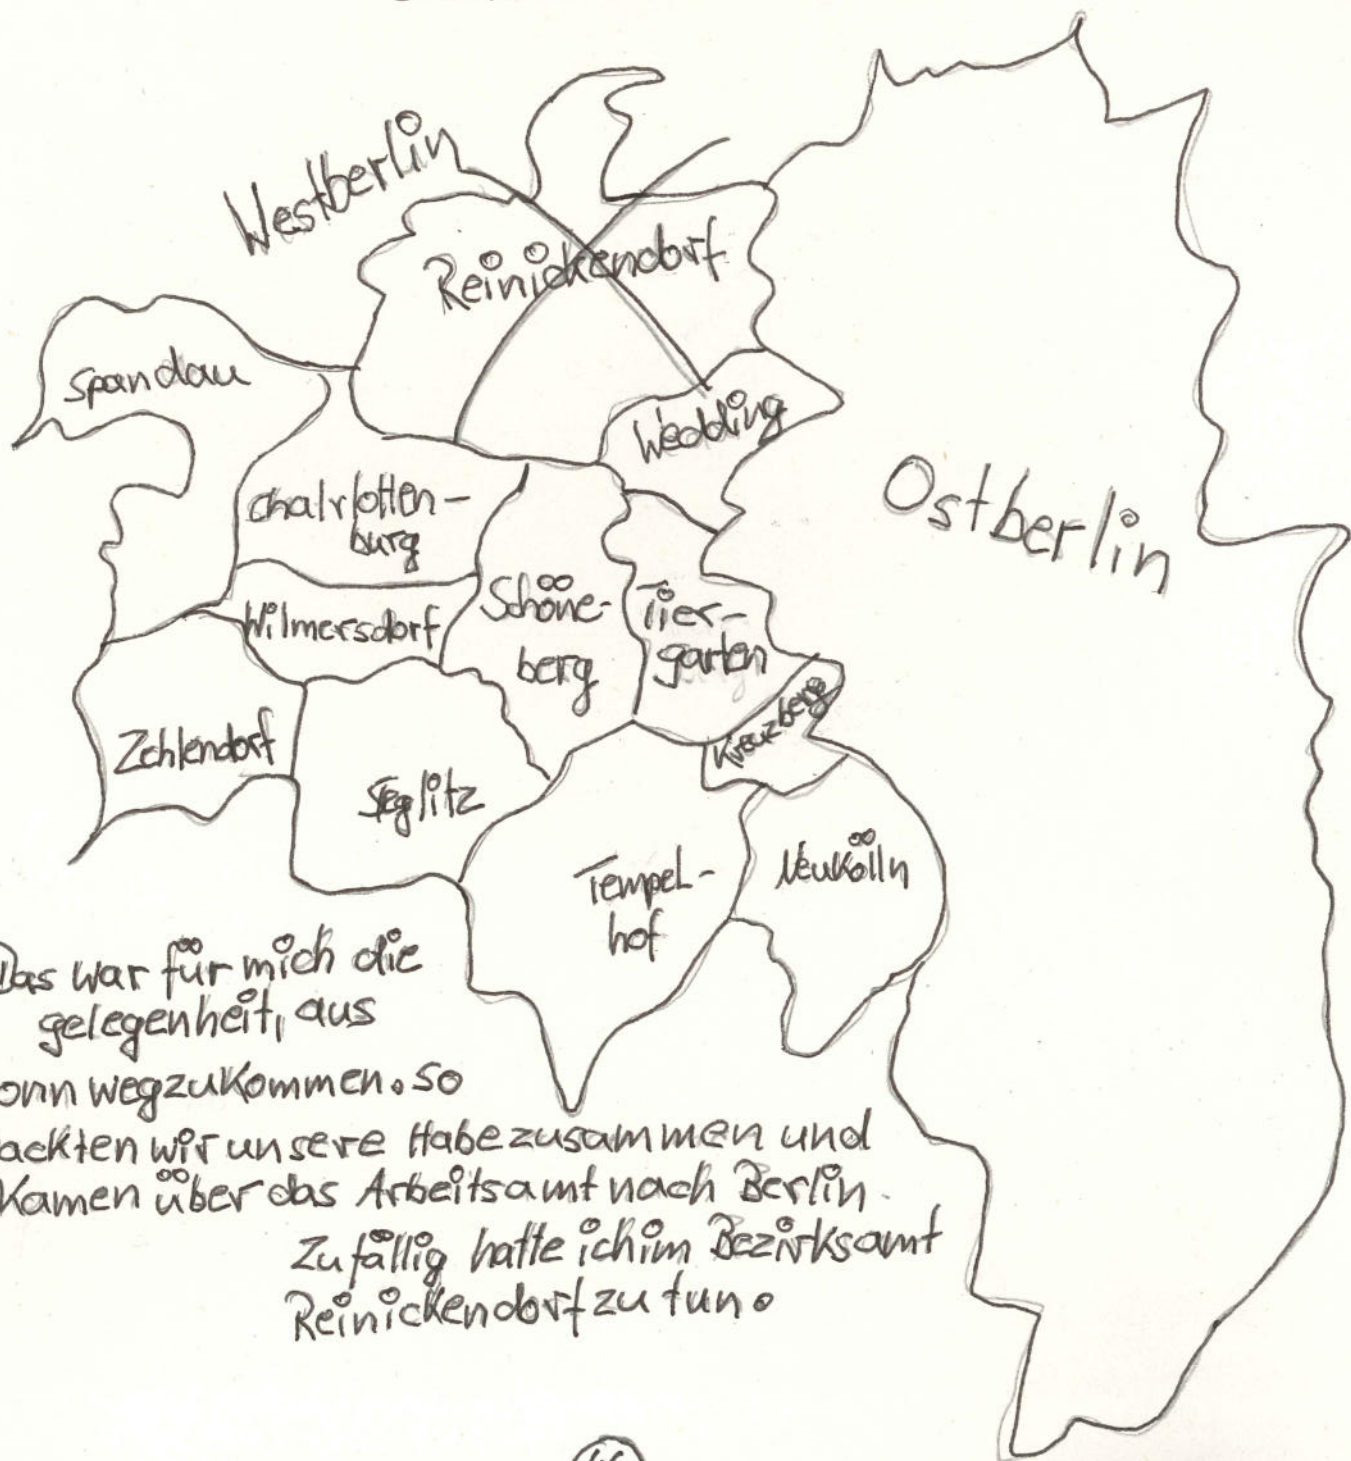 Westberlin
Reinickendorf
Spandau
Wedding
Chalrlotten-
burg
Ostberlin
Wilmersdorf
Schöne-
berg
Tier-
garten
Kreuzberg
Zehlendorf
Steglitz
Tempel-
hof
Neukölln
Das war für mich die
gelegenheit, aus
onn wegzukommen. so
ackten wir unsere Habe zusammen und
Kamen über das Arbeitsamt nach Berlin.
Zufällig hatte ich im Bezirksamt
Reinickendorf zu tun.